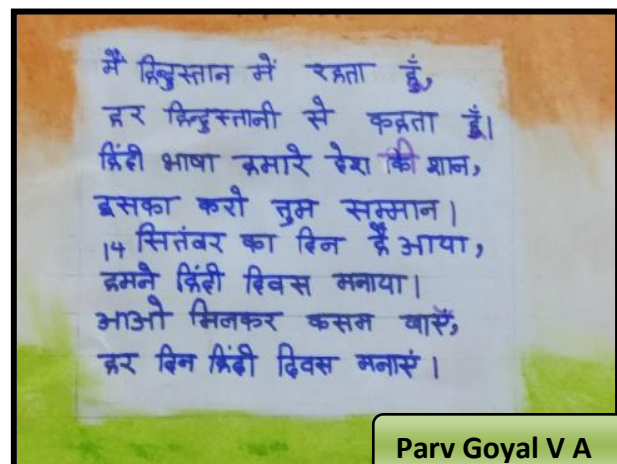 मैं हिन्दुस्तान में रहता हूँ,
हर हिन्दुस्तानी से कहता हूँ।
हिंदी भाषा हमारे देश की शान,
इसका करो तुम सम्मान।
14 सितंबर का दिन है आया,
हमने हिंदी दिवस मनाया।
आओ मिलकर कसम खाएँ,
हर दिन हिंदी दिवस मनाएं।
Parv Goyal V A